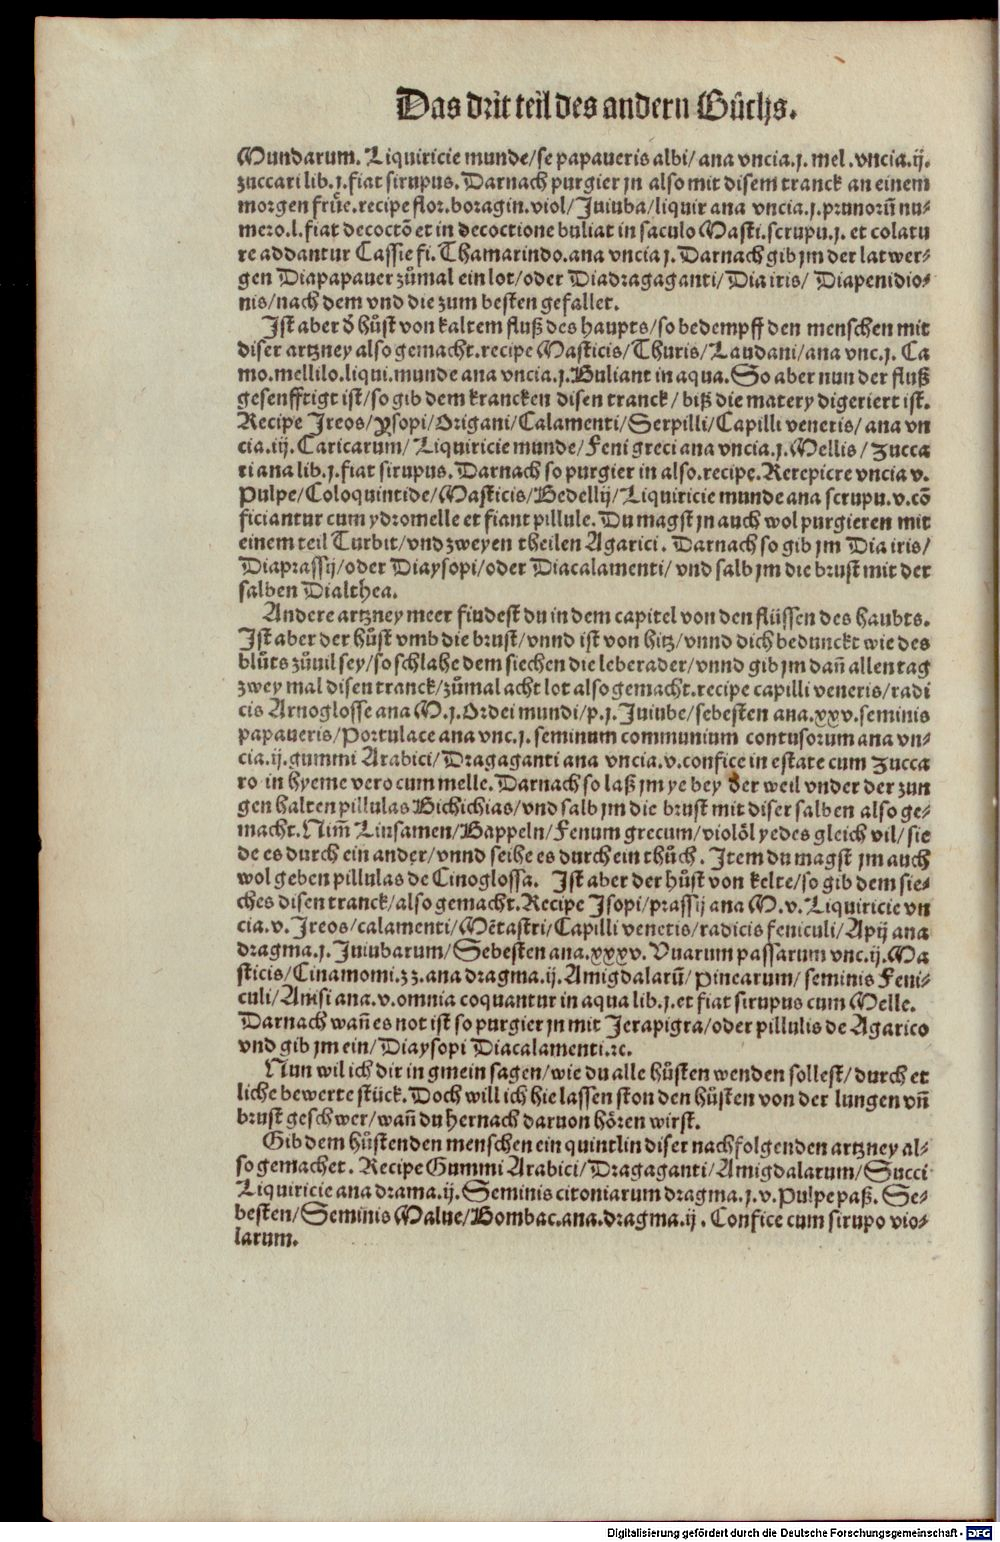 Das drit teil des andern Bůchs.
Mundarum. Liquiricie munde/se papaueris albi/ ana vncia.j. mel .vncia.ij.
zuccari lib.j.fiat sirupus. Darnach purgier jn also mit disem tranck an einem
morgen früe.recipe flor.boragin.viol/Juiuba/liquir ana vncia.j.prunorū nu⸗
mero.l.fiat decoctō et in decoctione buliat in saculo Masti.scrupu.j. et colatu
re addantur Cassie fi.Thamarindo.ana vncia j. Darnach gib jm der latwer⸗
gen Diapapauer zůmal ein lot/oder Diadragaganti/ Dia iris/ Diapenidio⸗
nis/nach dem vnd die zum besten gefallet.
Ist aber d̄ hůst von kaltem fluß des haupts/so bedempff den menschen mit
diser artzney also gemacht.recipe Masticis/Thuris/Laudani/ana vnc.j. Ca
mo.mellilo.liqui.munde ana vncia.j.Buliant in aqua.So aber nun der fluß
gesenfftigt ist/so gib dem krancken disen tranck/ biß die matery digeriert ist.
Recipe Jreos/ysopi/Origani/Calamenti/Serpilli/Capilli veneris/ ana vn
cia.iij.Caricarum/ Liquiricie munde/Feni greci ana vncia.j.Mellis/zucca
ri ana lib.j.fiat sirupus.Darnach so purgier in also.recipe.Rerepicre vncia v.
Pulpe/Coloquintide/Masticis/Bedellij/Liquiricie munde ana scrupu.v.cō
ficiantur cum ydromelle et fiant pillule. Du magst jn auch wol purgieren mit
einem teil Turbit/vnd zweyen theilen Agarici. Darnach so gib jm Dia iris/
Diaprassij/oder Diaysopi/oder Diacalamenti/ vnd salb jm die brust mit der
salben Dialthea.
Andere artzney meer findest du in dem capitel von den flüssen des haubts.
Ist aber der hůst vmb die brust/vnnd ist von hitz/vnnd dich bedunckt wie des
blůts zůuil sey/so schlahe dem siechen die leberader/vnnd gib jm dañ allen tag
zwey mal disen tranck/zůmal acht lot also gemacht.recipe capilli veneris/radi
cis Arnoglosse ana M.j.Ordei mundi/p.j.Juiube/sebesten ana.xxv.seminis
papaueris/Portulace ana vnc.j.seminum communium contusorum ana vn⸗
cia.ij.gummi Arabici/Dragaganti ana vncia.v.confice in estate cum zucca
ro in hyeme vero cum melle.Darnach so laß jm ye bey der weil vnder der zun
gen halten pillulas Bichichias/vnd salb jm die brust mit diser salben also ge⸗
macht.Nim̄ Linsamen/Bappeln/Fenum grecum/violöl yedes gleich vil/sie
de es durch ein ander/vnnd seihe es durch ein thůch. Item du magst jm auch
wol geben pillulas de Cinoglossa. Ist aber der hůst von kelte/so gib dem sie⸗
ches disen tranck/also gemacht.Recipe Isopi/prassij ana M.v.Liquiricie vn
cia.v.Jreos/calamenti/Mētastri/Capilli veneris/radicis feniculi/Apij ana
dragma.j.Juiubarum/Sebesten ana.xxxv.Vuarum passarum vnc.ij.Ma
sticis/Cinamomi.zz.ana dragma.ij.Amigdalarū/pinearum/ seminis Feni⸗
culi/Anisi ana.v.omnia coquantur in aqua lib.j.et fiat sirupus cum Melle.
Darnach wañ es not ist so purgier jn mit Jerapigra/oder pillulis de Agarico
vnd gib jm ein/Diaysopi Diacalamenti.ꝛc.
Nun wil ich dir in gmein sagen/wie du alle hůsten wenden sollest/durch et
liche bewerte stück.Doch will ich hie lassen ston den hůsten von der lungen vñ
brust geschwer/wañ du hernach daruon hören wirst.
Gib dem hůstenden menschen ein quintlin diser nachfolgenden artzney al⸗
so gemachet. Recipe Gummi Arabici/Dragaganti/Amigdalarum/Succi
Liquiricie ana drama.ij.Seminis citoniarum dragma.j.v.Pulpe paß. Se⸗
besten/Seminis Malue/Bombac.ana.dragma.ij. Confice cum sirupo vio⸗
larum.
Digitalisierung gefördert durch die Deutsche Forschungsgemeinschaft - DFG